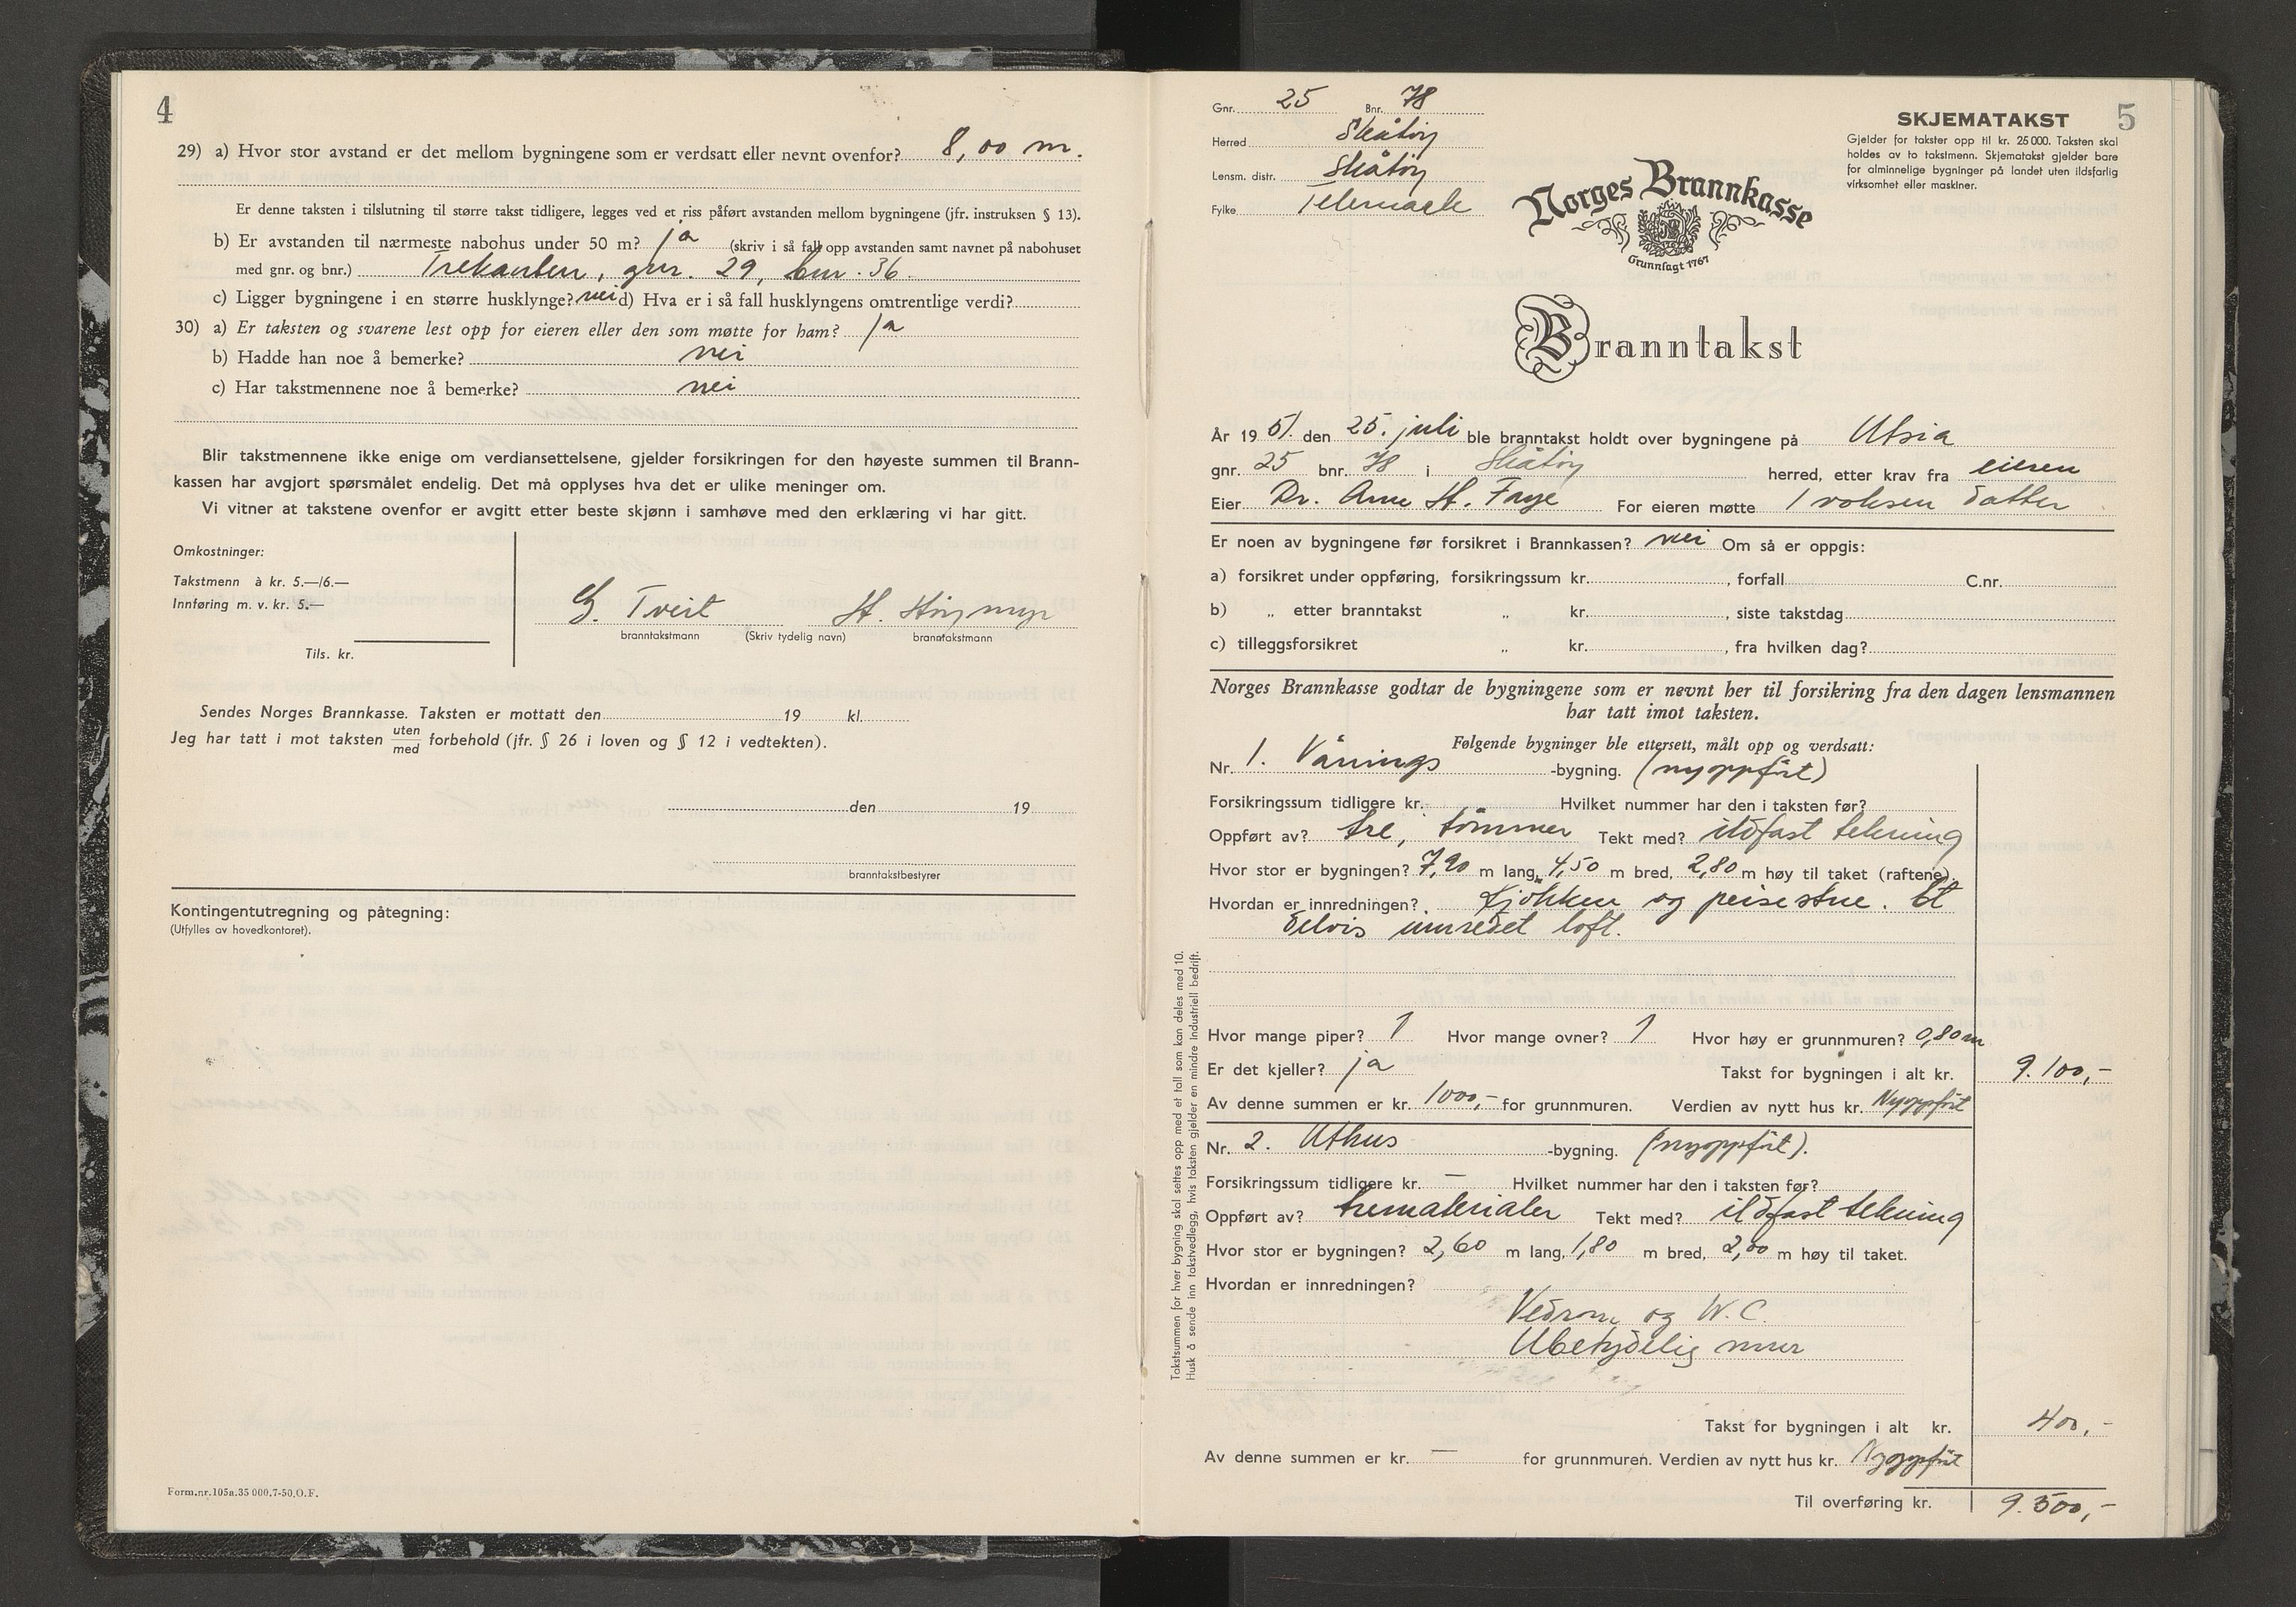 4
29) a) Hvor stor avstand er det mellom bygningene som er verdsatt eller nevnt ovenfor? 8,00 m.
Er denne taksten i tilslutning til større takst tidligere, legges ved et riss påført avstanden mellom bygningene (jfr. instruksen § 13).
b) Er avstanden til nærmeste nabohus under 50 m? ja (skriv i så fall opp avstanden samt navnet på nabohuset
med gnr. og bnr.) Trekanten, gnr. 29, bnr. 36.
c) Ligger bygningene i en større husklynge? nei d) Hva er i så fall husklyngens omtrentlige verdi?
30) a) Er taksten og svarene lest opp for eieren eller den som møtte for ham? ja
b) Hadde han noe å bemerke? nei
c) Har takstmennene noe å bemerke? nei
Blir takstmennene ikke enige om verdiansettelsene, gjelder forsikringen for den høyeste summen til Brann-
kassen har avgjort spørsmålet endelig. Det må opplyses hva det er ulike meninger om.
Vi vitner at takstene ovenfor er avgitt etter beste skjønn i samhøve med den erklæring vi har gitt.
Omkostninger:
Takstmenn à kr. 5.—/6.—
Innføring m. v. kr. 5.—
Tils. kr.
G. Tveit H. Höymyr
branntakstmann (Skriv tydelig navn) branntakstmann
Sendes Norges Brannkasse. Taksten er mottatt den 19 kl.
Jeg har tatt i mot taksten uten/med forbehold (jfr. § 26 i loven og § 12 i vedtekten).
den 19
branntakstbestyrer
Kontingentutregning og påtegning:
(Utfylles av hovedkontoret).
Form.nr.105a.35 000.7-50.O.F.
5
Gnr. 25 Bnr. 78
Herred Skåtöy
Lensm. distr. Skåtöy
Fylke Telemark
SKJEMATAKST
Gjelder for takster opp til kr. 25 000. Taksten skal
holdes av to takstmenn. Skjematakst gjelder bare
for alminnelige bygninger på landet uten ildsfarlig
virksomhet eller maskiner.
Norges Brannkasse
Grunnlagt 1767
Branntakst
År 19 51. den 25. juli ble branntakst holdt over bygningene på Utsia
gnr. 25 bnr. 78 i Skåtöy herred, etter krav fra eieren
Eier Dr. Arne H. Faye For eieren møtte 1 voksen datter
Er noen av bygningene før forsikret i Brannkassen? nei Om så er oppgis:
a) forsikret under oppføring, forsikringssum kr. , forfall C.nr.
b) „ etter branntakst „ kr. , siste takstdag
c) tilleggsforsikret „ kr. , fra hvilken dag?
Norges Brannkasse godtar de bygningene som er nevnt her til forsikring fra den dagen lensmannen
har tatt imot taksten.
Følgende bygninger ble ettersett, målt opp og verdsatt:
Nr. 1. Vånings -bygning. (nyoppfört)
Forsikringssum tidligere kr. Hvilket nummer har den i taksten før?
Oppført av? tre, tömmer Tekt med? ildfast tekning
Hvor stor er bygningen? 7,90 m lang, 4,50 m bred, 2,80 m høy til taket (raftene).
Hvordan er innredningen? Kjökken og peisestue. Et
delvis innredet loft.
Hvor mange piper? 1 Hvor mange ovner? 1 Hvor høy er grunnmuren? 0,80 m
Er det kjeller? ja Takst for bygningen i alt kr. 9.100,-
Av denne summen er kr. 1000,- for grunnmuren. Verdien av nytt hus kr. Nyoppfört
Nr. 2. Uthus -bygning. (nyoppfört).
Forsikringssum tidligere kr. — Hvilket nummer har den i taksten før?
Oppført av? trematerialer Tekt med? ildfast tekning
Hvor stor er bygningen? 2,60 m lang, 1,80 m bred, 2,00 m høy til taket.
Hvordan er innredningen?
Vedrom og W.C.
Ubetydelig mur
Takst for bygningen i alt kr. 400,-
Av denne summen er kr. — for grunnmuren. Verdien av nytt hus kr. Nyoppfört
Til overføring kr. 9.500,-
Takstsummen for hver bygning skal settes opp med et tall som kan deles med 10.
Husk å sende inn takstvedlegg, hvis taksten gjelder en mindre industriell bedrift.